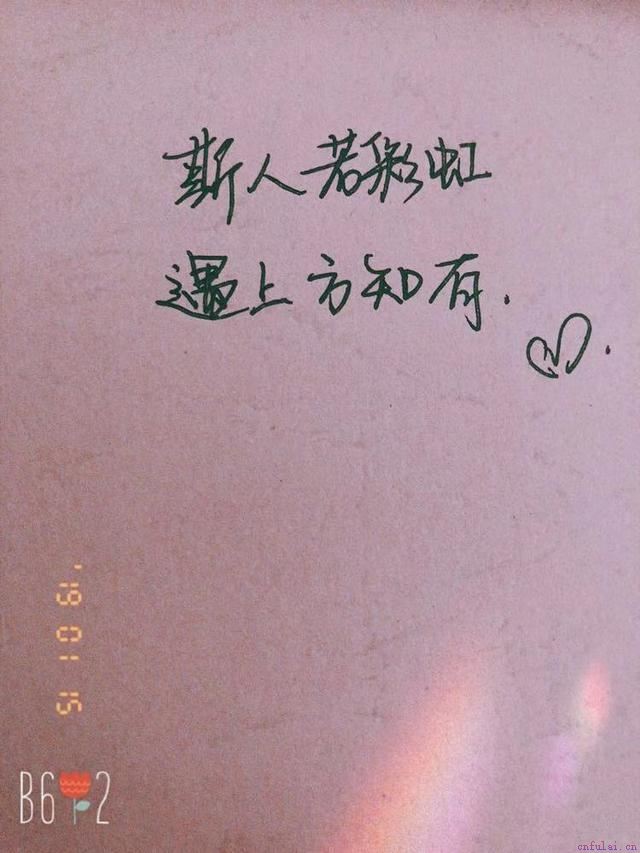 斯人若彩虹
遇上方知有.
'19 01 15
B62
cnfulai.cn